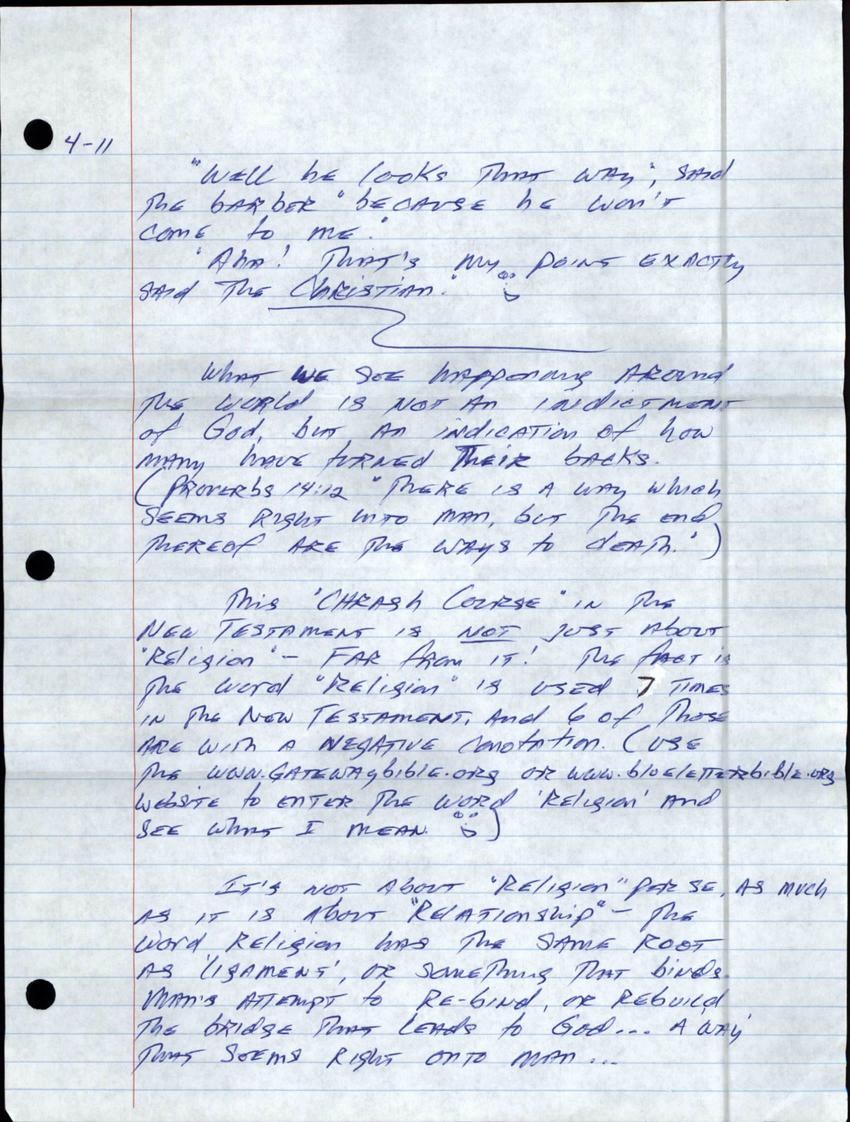 4-11
"Well he looks that way", said
the barber "because he won't
come to me."
"Aha! That's my point exactly
said the Christian."
What we see happening around
the world is not an indictment
of God, but an indication of how
many have turned their backs.
(Proverbs 14:12 "There is a way which
seems right unto man, but the end
thereof are the ways to death.")
This "Chrash Course" in the
New Testament is not just about
"Religion" - far from it! The fact is
the word "Religion" is used 7 times
in the New Testament, and 6 of those
are with a negative conotation. (Use
the www.gatewaybible.org or www.blueletterbible.org
website to enter the word 'Religion' and
see what I mean.)
It's not about "Religion" per se, as much
as it is about "Relationship" - the
word religion has the same root
as 'ligament', or something that binds.
Man's attempt to re-bind, or rebuild
the bridge that leads to God... a way
that seems right onto man...